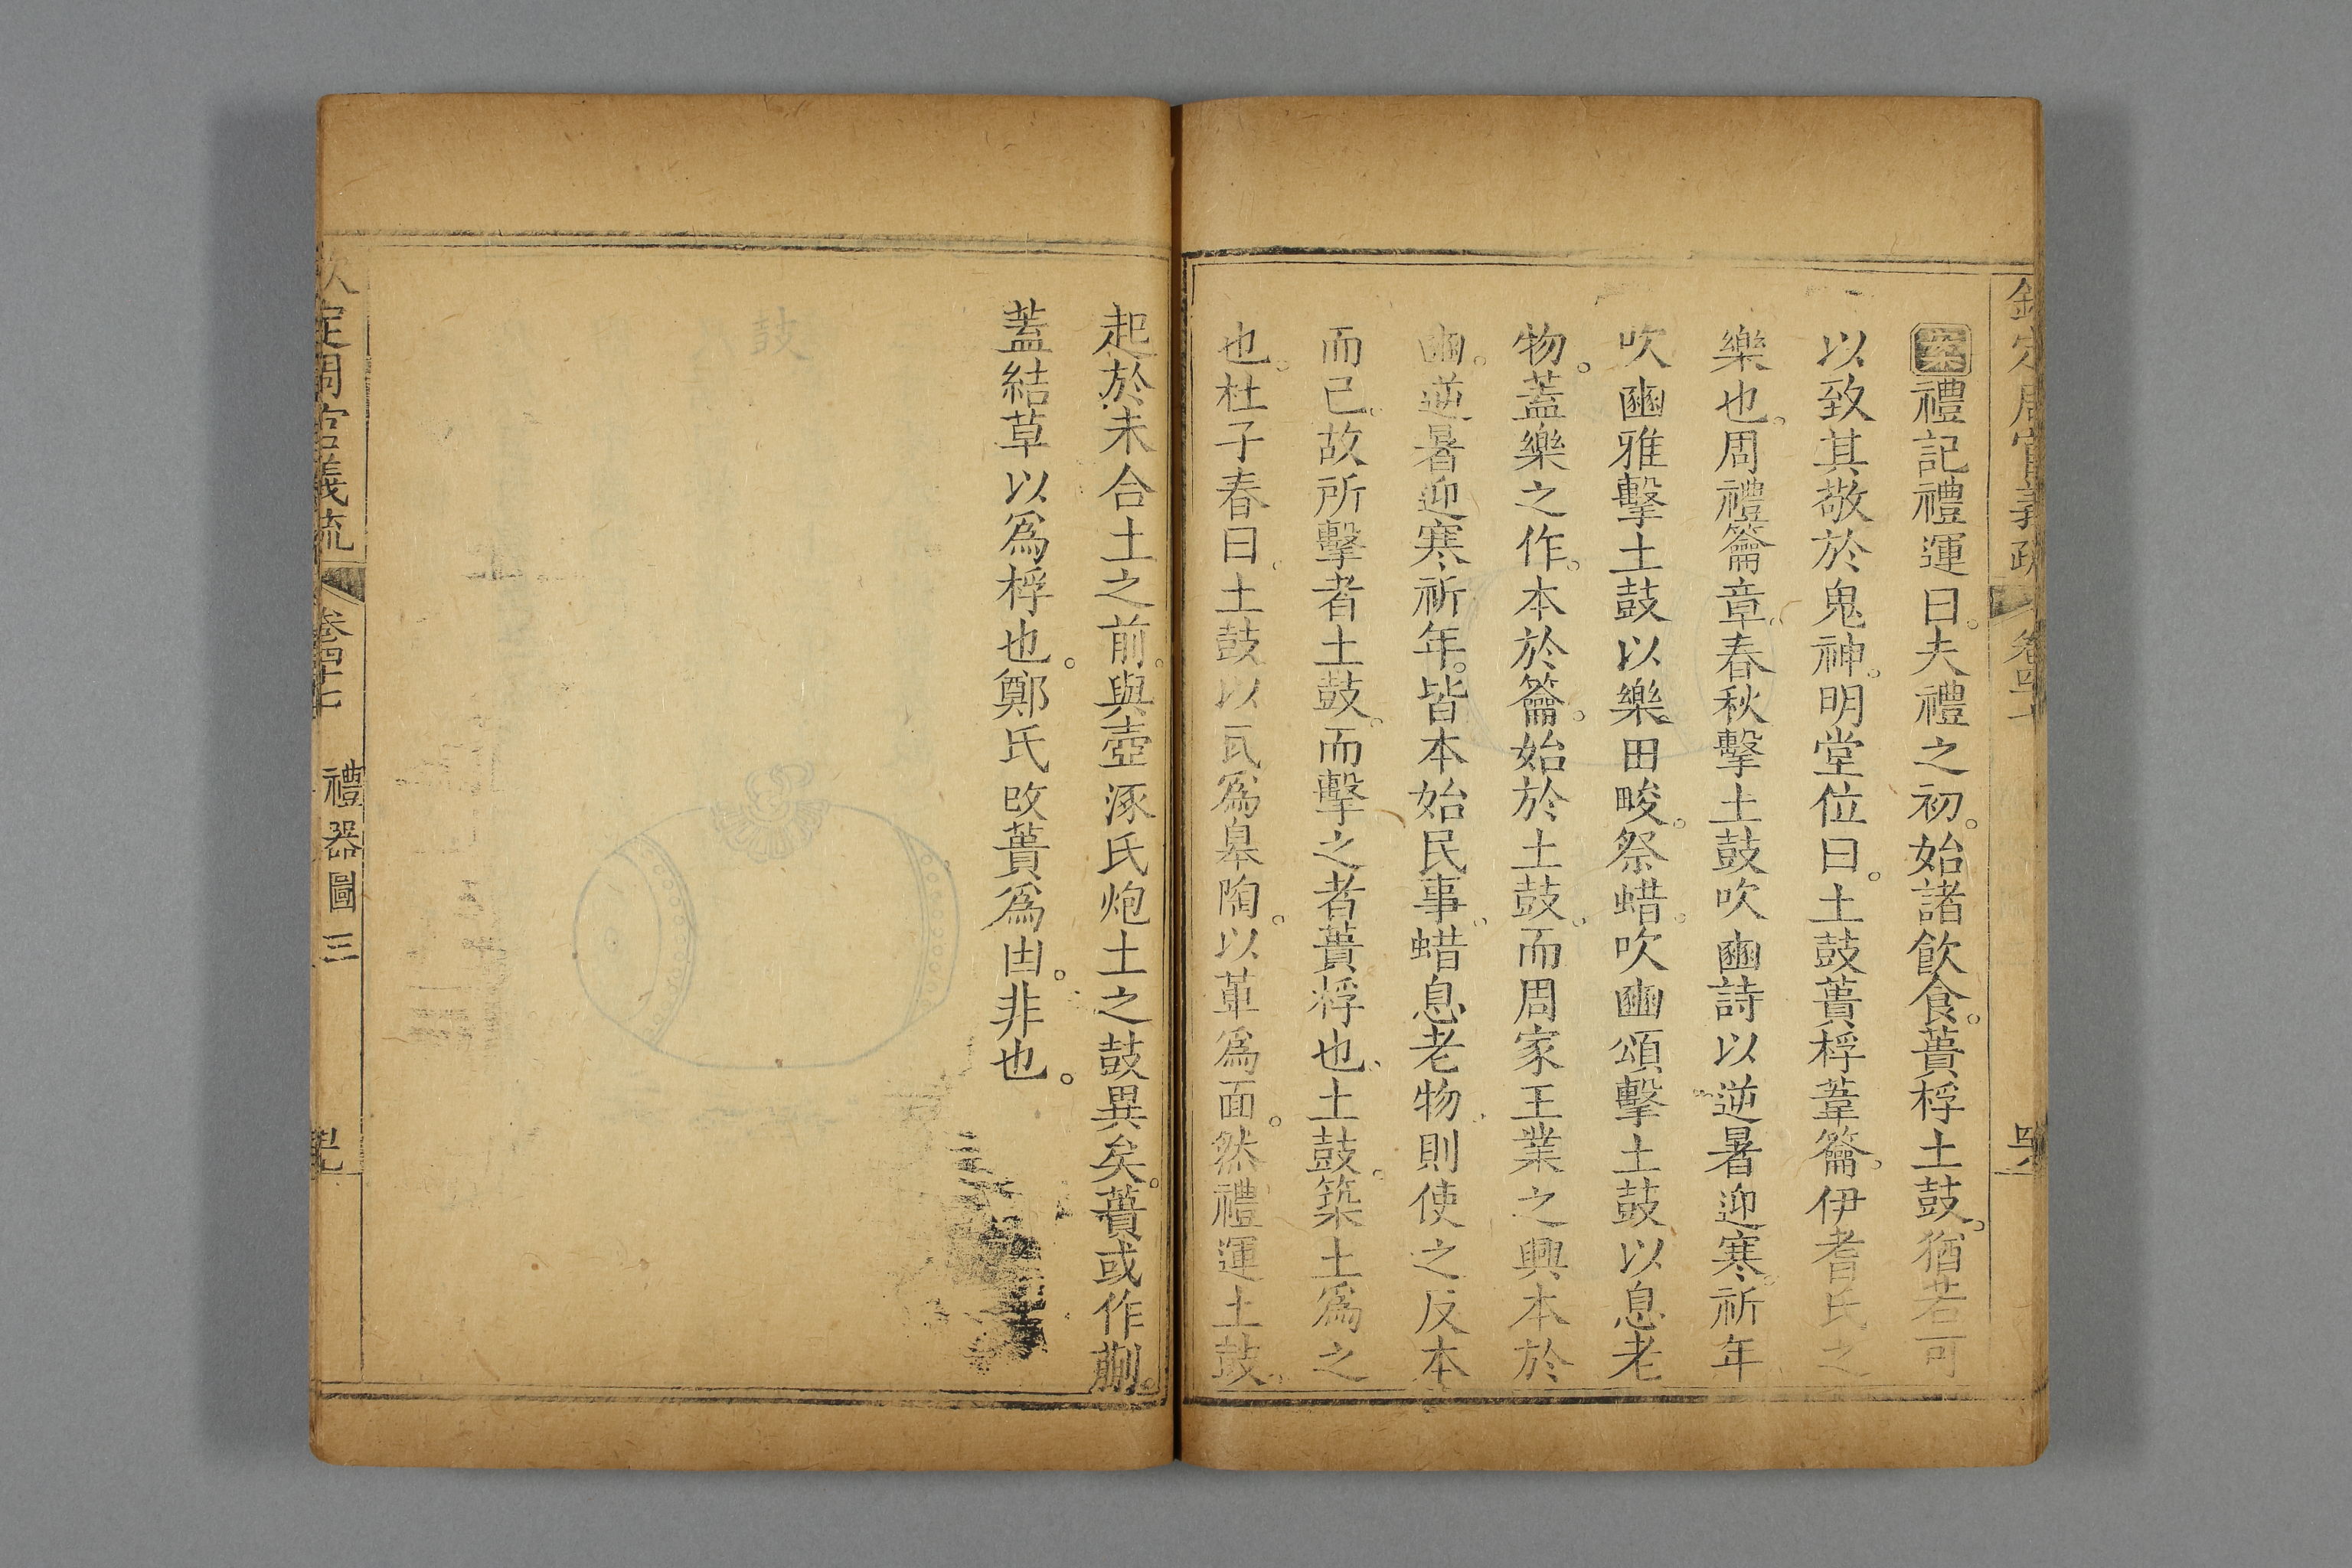 欽定周官義疏 卷四十
案禮記禮運曰。夫禮之初。始諸飲食。蕢桴土鼓。猶若可
以致其敬於鬼神。明堂位曰。土鼓蕢桴葦籥。伊耆氏之
樂也。周禮籥章。春秋擊土鼓吹豳詩以逆暑迎寒。祈年
吹豳雅擊土鼓以樂田畯。祭蜡。吹豳頌擊土鼓以息老
物。蓋樂之作。本於籥。始於土鼓。而周家王業之興本於
豳。逆暑迎寒祈年。皆本始民事。蜡息老物。則使之反本
而已。故所擊者土鼓。而擊之者蕢桴也。土鼓。築土爲之
也。杜子春曰。土鼓以瓦爲臯陶。以革爲面。然禮運土鼓。
起於未合土之前。與壺涿氏炮土之鼓異矣。蕢或作蒯。
蓋結草以爲桴也。鄭氏改蕢爲凷。非也。
欽定周官義疏 卷四十七 禮器圖三